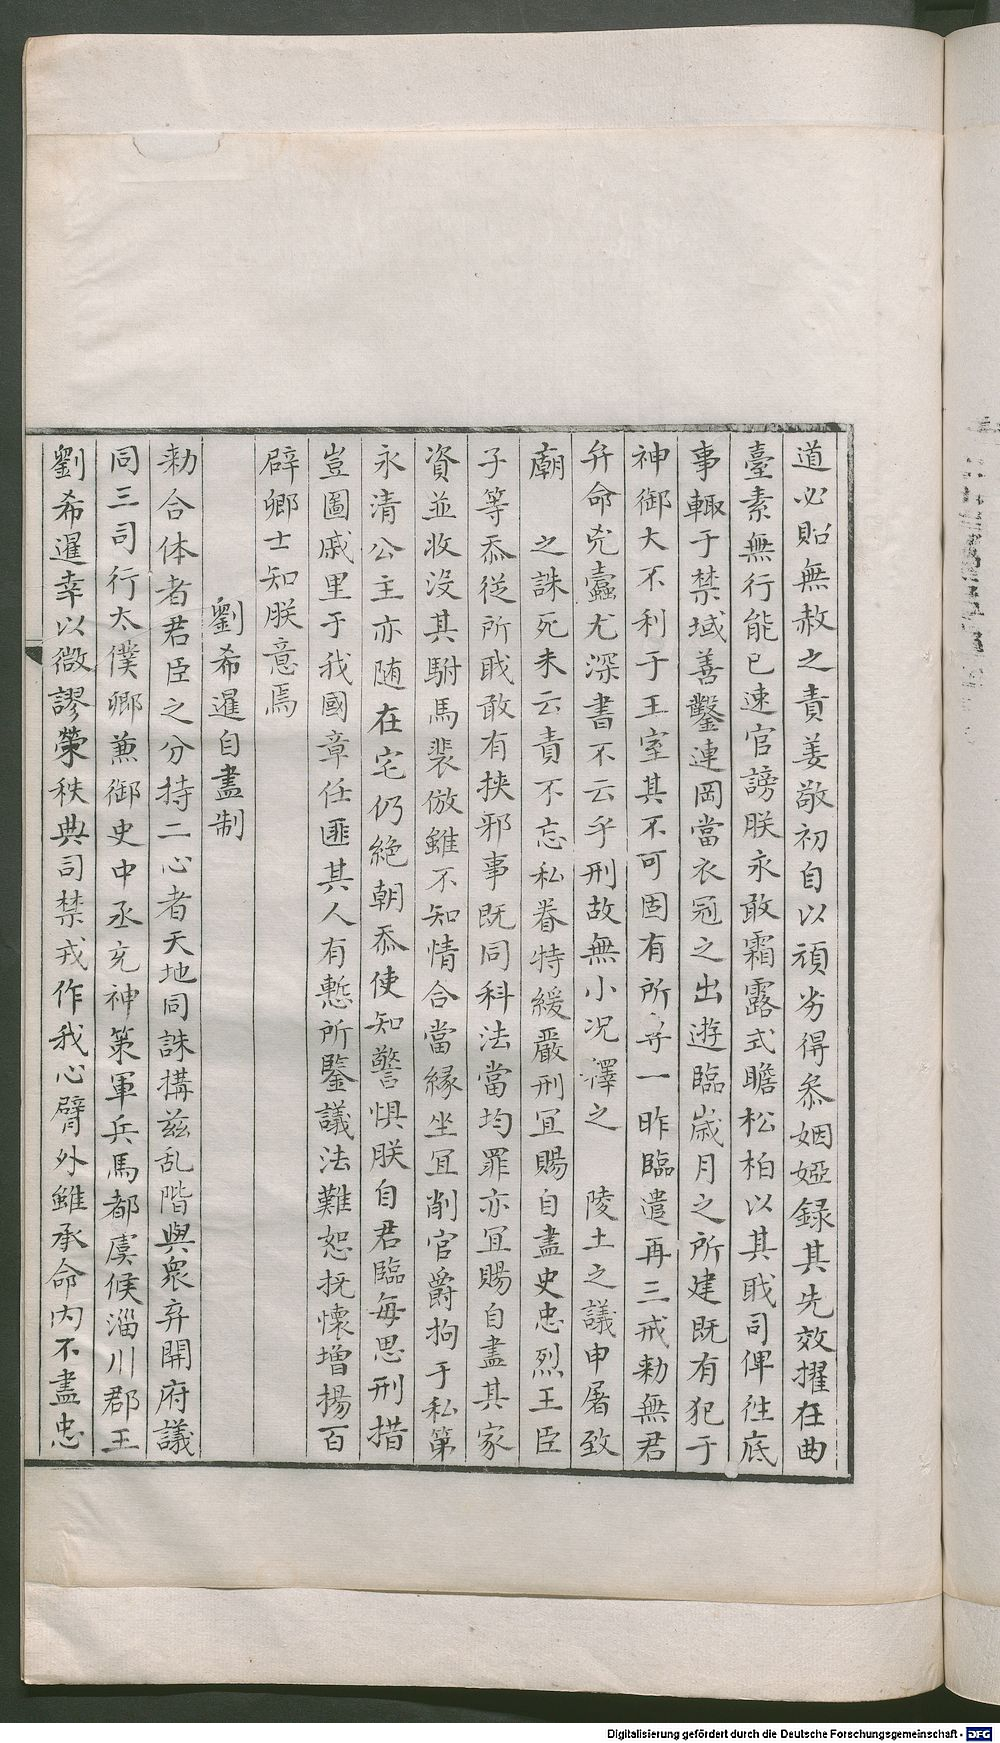 道必貽無赦之責姜敬初自以頑劣得忝姻婭録其先效擢在曲
臺素無行能已速官謗朕永敢霜露式瞻松柏以其戝司俾往底
事輙于禁域善鑿連岡當衣冠之出遊臨歳月之所建既有犯于
神御大不利于王室其不可固有所一昨臨遣再三戒勅無君
弁命兇蠧尤深書不云乎刑故無小况澤之　陵土之議申屠致
廟　之誅死未云責不忘私眷特緩嚴刑宜賜自盡史忠烈王臣
子等忝從所戝敢有挾邪事既同科法當均罪亦宜賜自盡其家
資並收没其駙馬裴倣雖不知情合當縁坐宜削官爵拘于私第
永清公主亦随在宅仍絶朝忝使知警惧朕自君臨毎思刑措
豈圖戚里于我國章任匪其人有慙所鑒議法難恕抚懷增揚百
辟卿士知朕意焉
劉希暹自盡制
勅合体者君臣之分持二心者天地同誅搆兹乱階與衆弃開府議
同三司行太僕卿兼御史中丞充神策軍兵馬都虞候淄川郡王
劉希暹幸以微謬榮秩典司禁戎作我心臂外雖承命内不盡忠
Digitalisierung gefördert durch die Deutsche Forschungsgemeinschaft - DFG